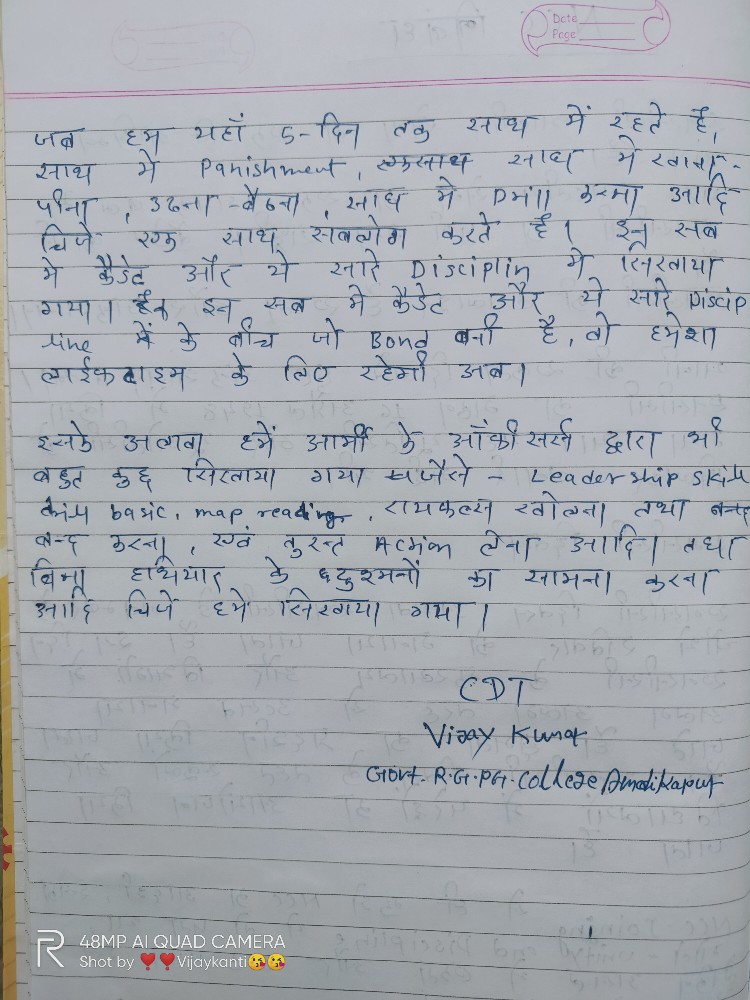 Date
Page
जब हम यहाँ 5-दिन तक साथ में रहते है,
साथ मे Panishment, एकसाथ साथ में खाना-
पीना, उठना-बैठना, साथ मे Drill करना आदि
चिजे एक साथ करते है। इन सब
मे कैडेट और ये सारे Disciplin मे सिखाया
गया। इन सब मे कैडेट और ये सारे Discip
line में के बीच जो Bond बनी है, वो हमेशा
लाईफटाइम के लिए रहेगी अब।
इसके अलावा हमें आर्मी के ऑफीसर्स द्वारा भी
बहुत कुछ सिखाया गया जैसे - Leadership skill
basic, map reading, रायफल्स खोलना तथा बन्द
बन्द करना, एवं तुरन्त Action लेना आदि। तथा
बिना हथियार के दुश्मनों का सामना करना
आदि चिजे हमे सिखाया गया।
CDT
Vijay Kumar
Govt. R.G.PG.College Ambikapur
48MP AI QUAD CAMERA
Shot by ❤️❤️Vijaykanti😘😘